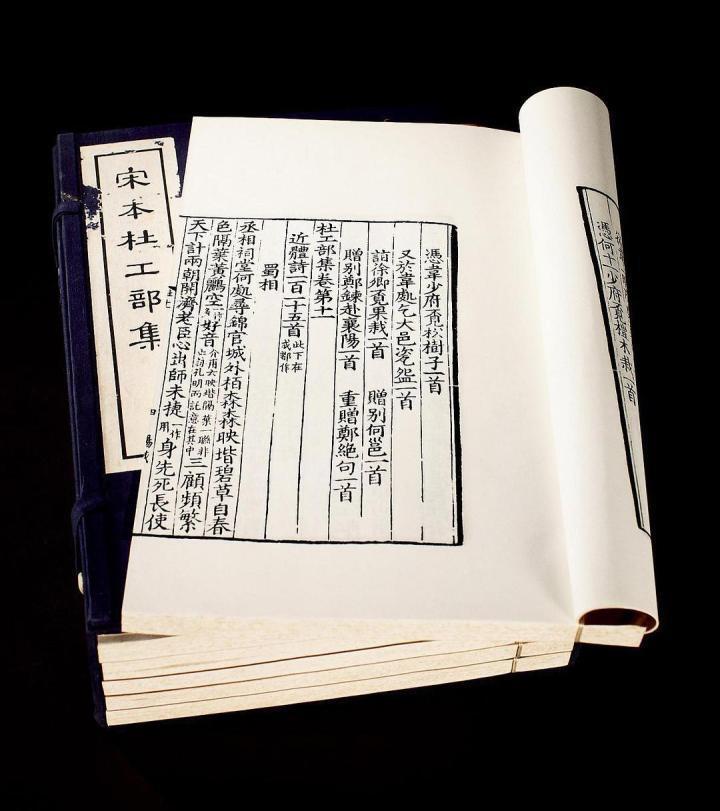 憑何十一少府覔榿木栽一首
憑韋少府覔松樹子一首
又於韋處乞大邑瓷盌一首
詣徐卿覔果栽一首 贈別何邕一首
贈別鄭鍊赴襄陽一首 重贈鄭絕句一首
杜工部集卷第十一
近體詩一百一十五首 此下在成都作
蜀相
丞相祠堂何處尋錦官城外栢森森映堦碧草自春
色隔葉黃鸝空好音 介甫云映堦隔葉一聯非止詠孔明而託意在其中 三顧頻繁
天下計兩朝開濟老臣心出師未捷 一作用 身先死長使
宋本杜工部集